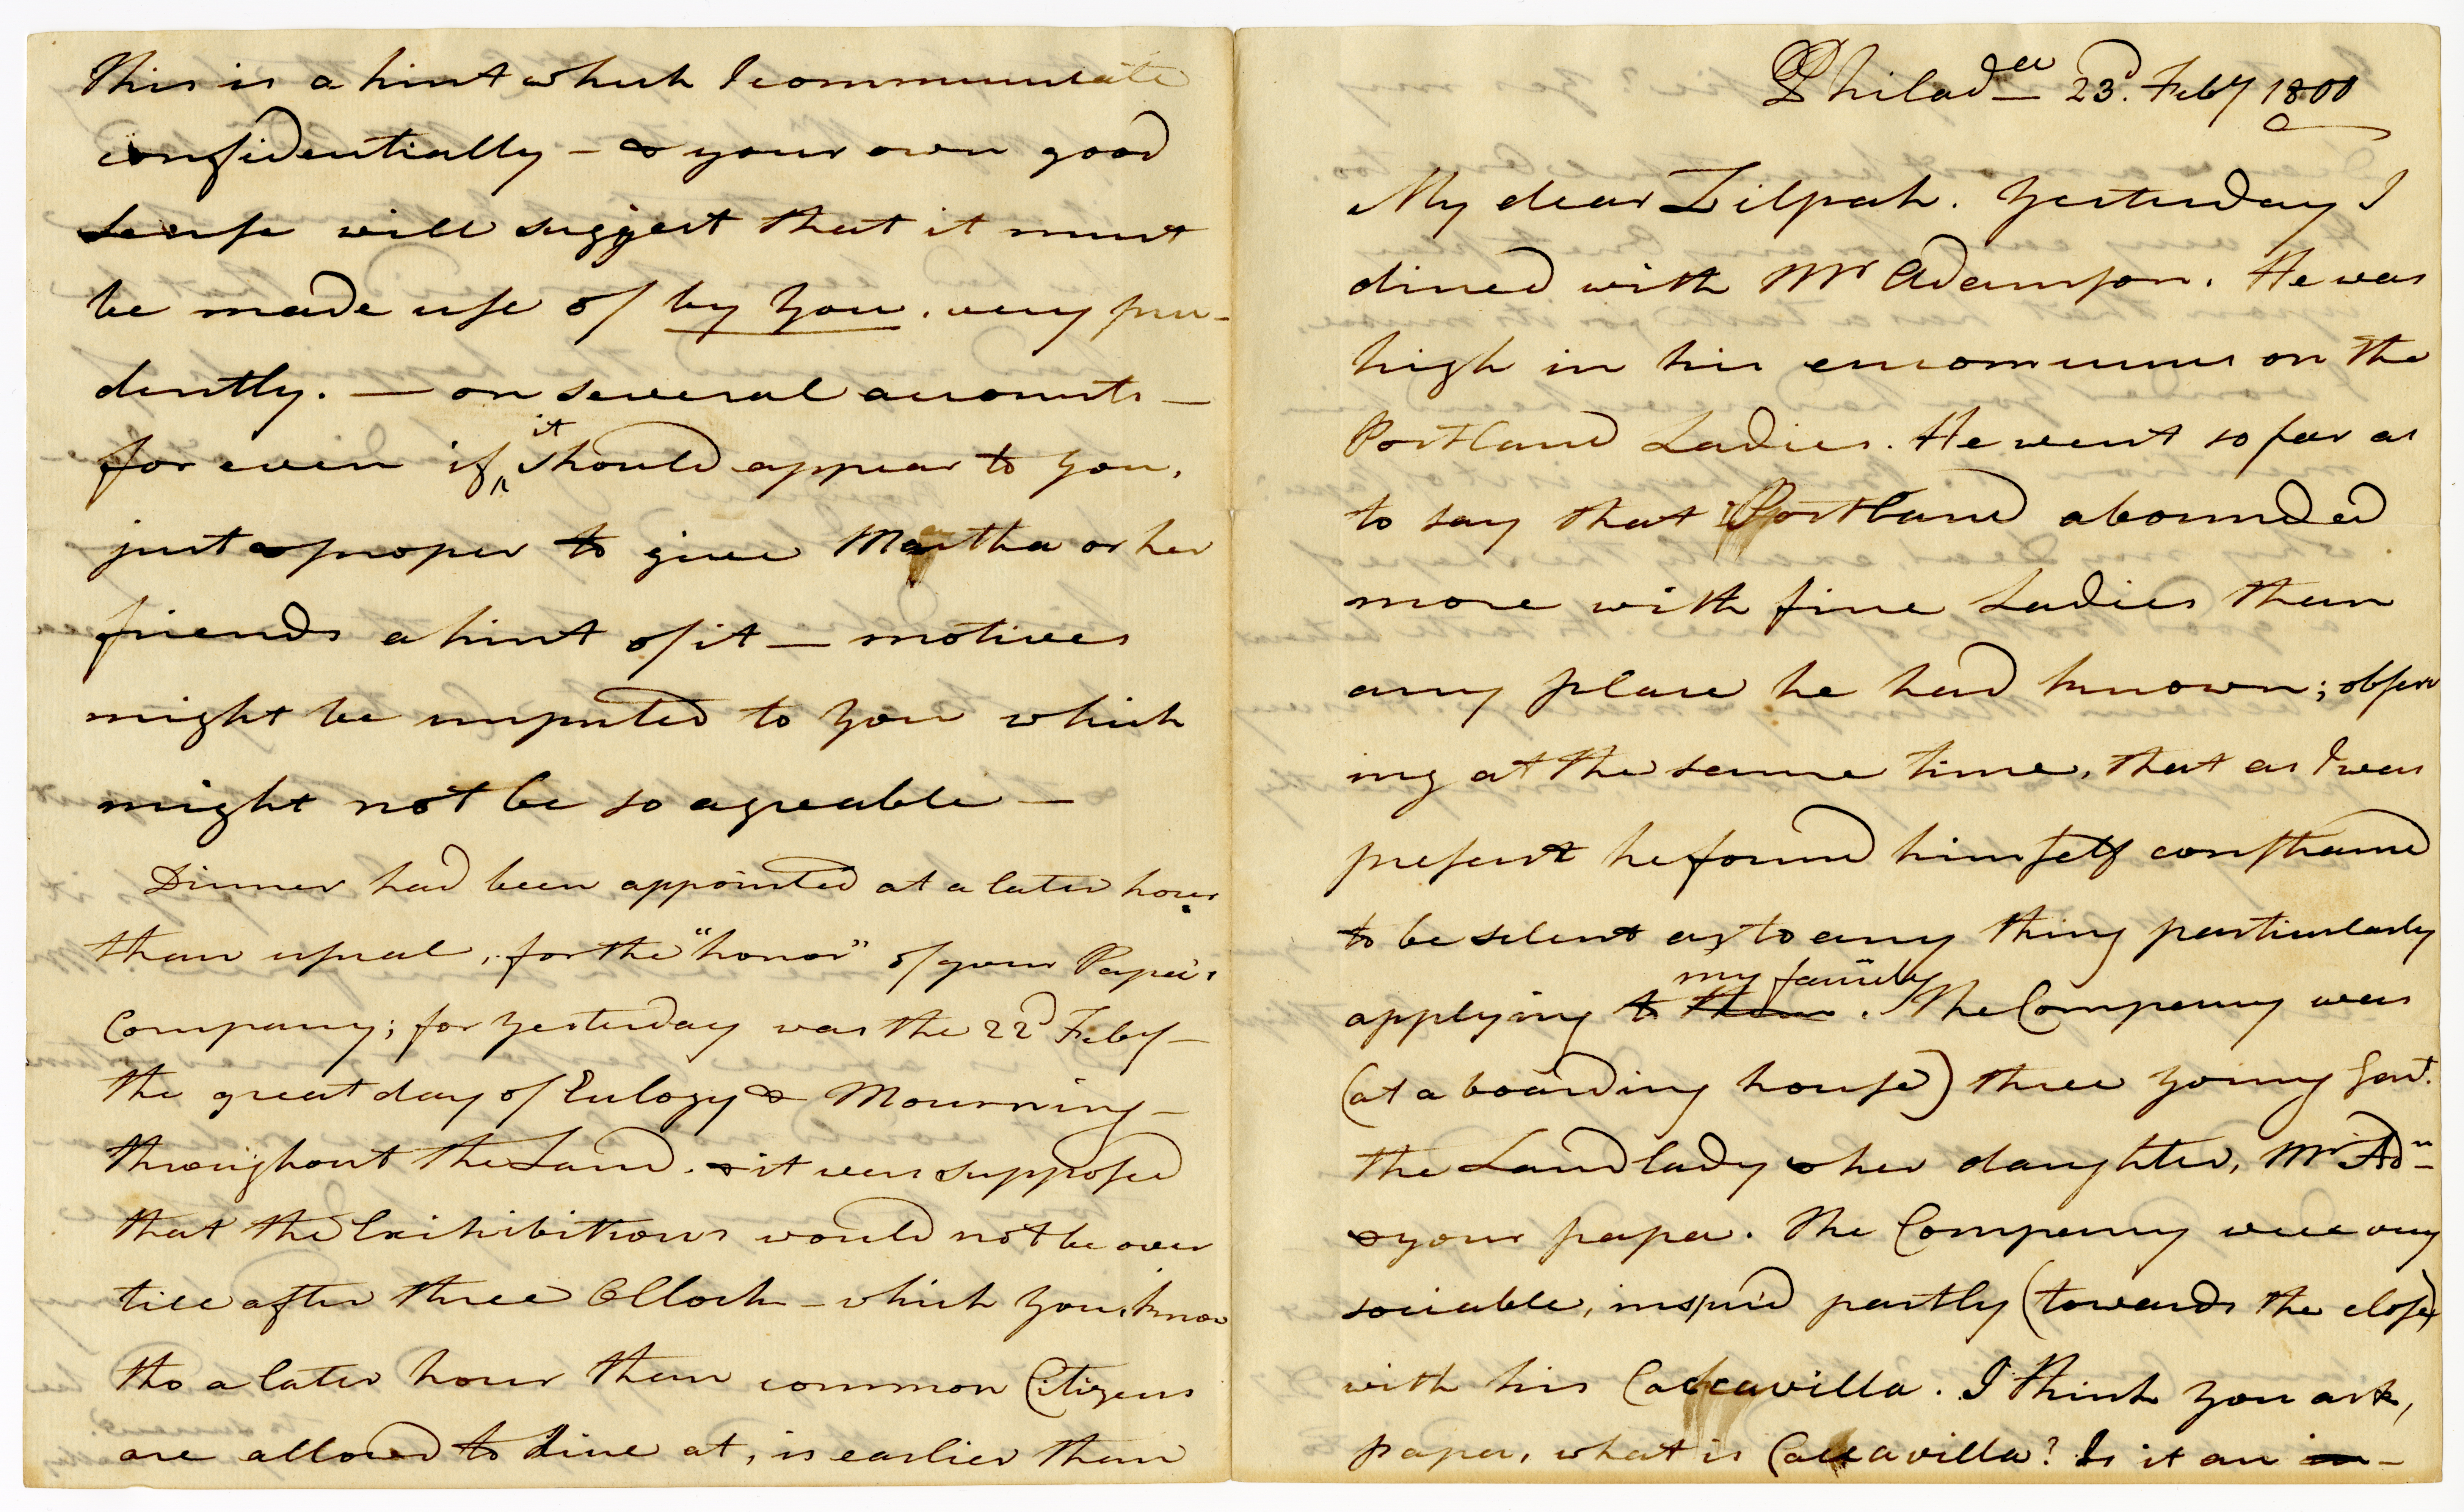 This is a hint which I communicate
confidentially – & your own good
sense will suggest that it must
be made use of by you. very pru-
dently. — on several accounts —
for even if it should appear to you,
just & proper to give Martha or her
friends a hint of it — motives
might be imputed to you which
might not be so agreable —
Dinner had been appointed at a later hour
than usual, for the "honor" of your Papa's
Company; for yesterday was the 22d Feby –
the great day of Eulogy & Mourning –
throughout the Land. & it was supposed
that the Exihibitions would not be over
till after three OClock – which you know
tho a later hour than common Citizens
are allowed to dine at, is earlier than
Philada 23d. Feby 1800
My dear Zilpah. Yesterday I
dined with Mr Adamson. He was
high in his encomiums on the
Portland Ladies. He went so far as
to say that Portland abounded
more with fine Ladies than
any place he had known; observ
ing at the same time, that as I was
present he found himself constrained
to be silent as to any thing particularly
applying to them my family. The Company was
(at a boarding house) three young Gent.
the Landlady & her daughter, Mr Adn
& your papa. The Company were very
sociable, inspir'd partly (towards the close)
with his Calcavilla. I think you ask,
papa, what is Calcavilla? Is it an in-